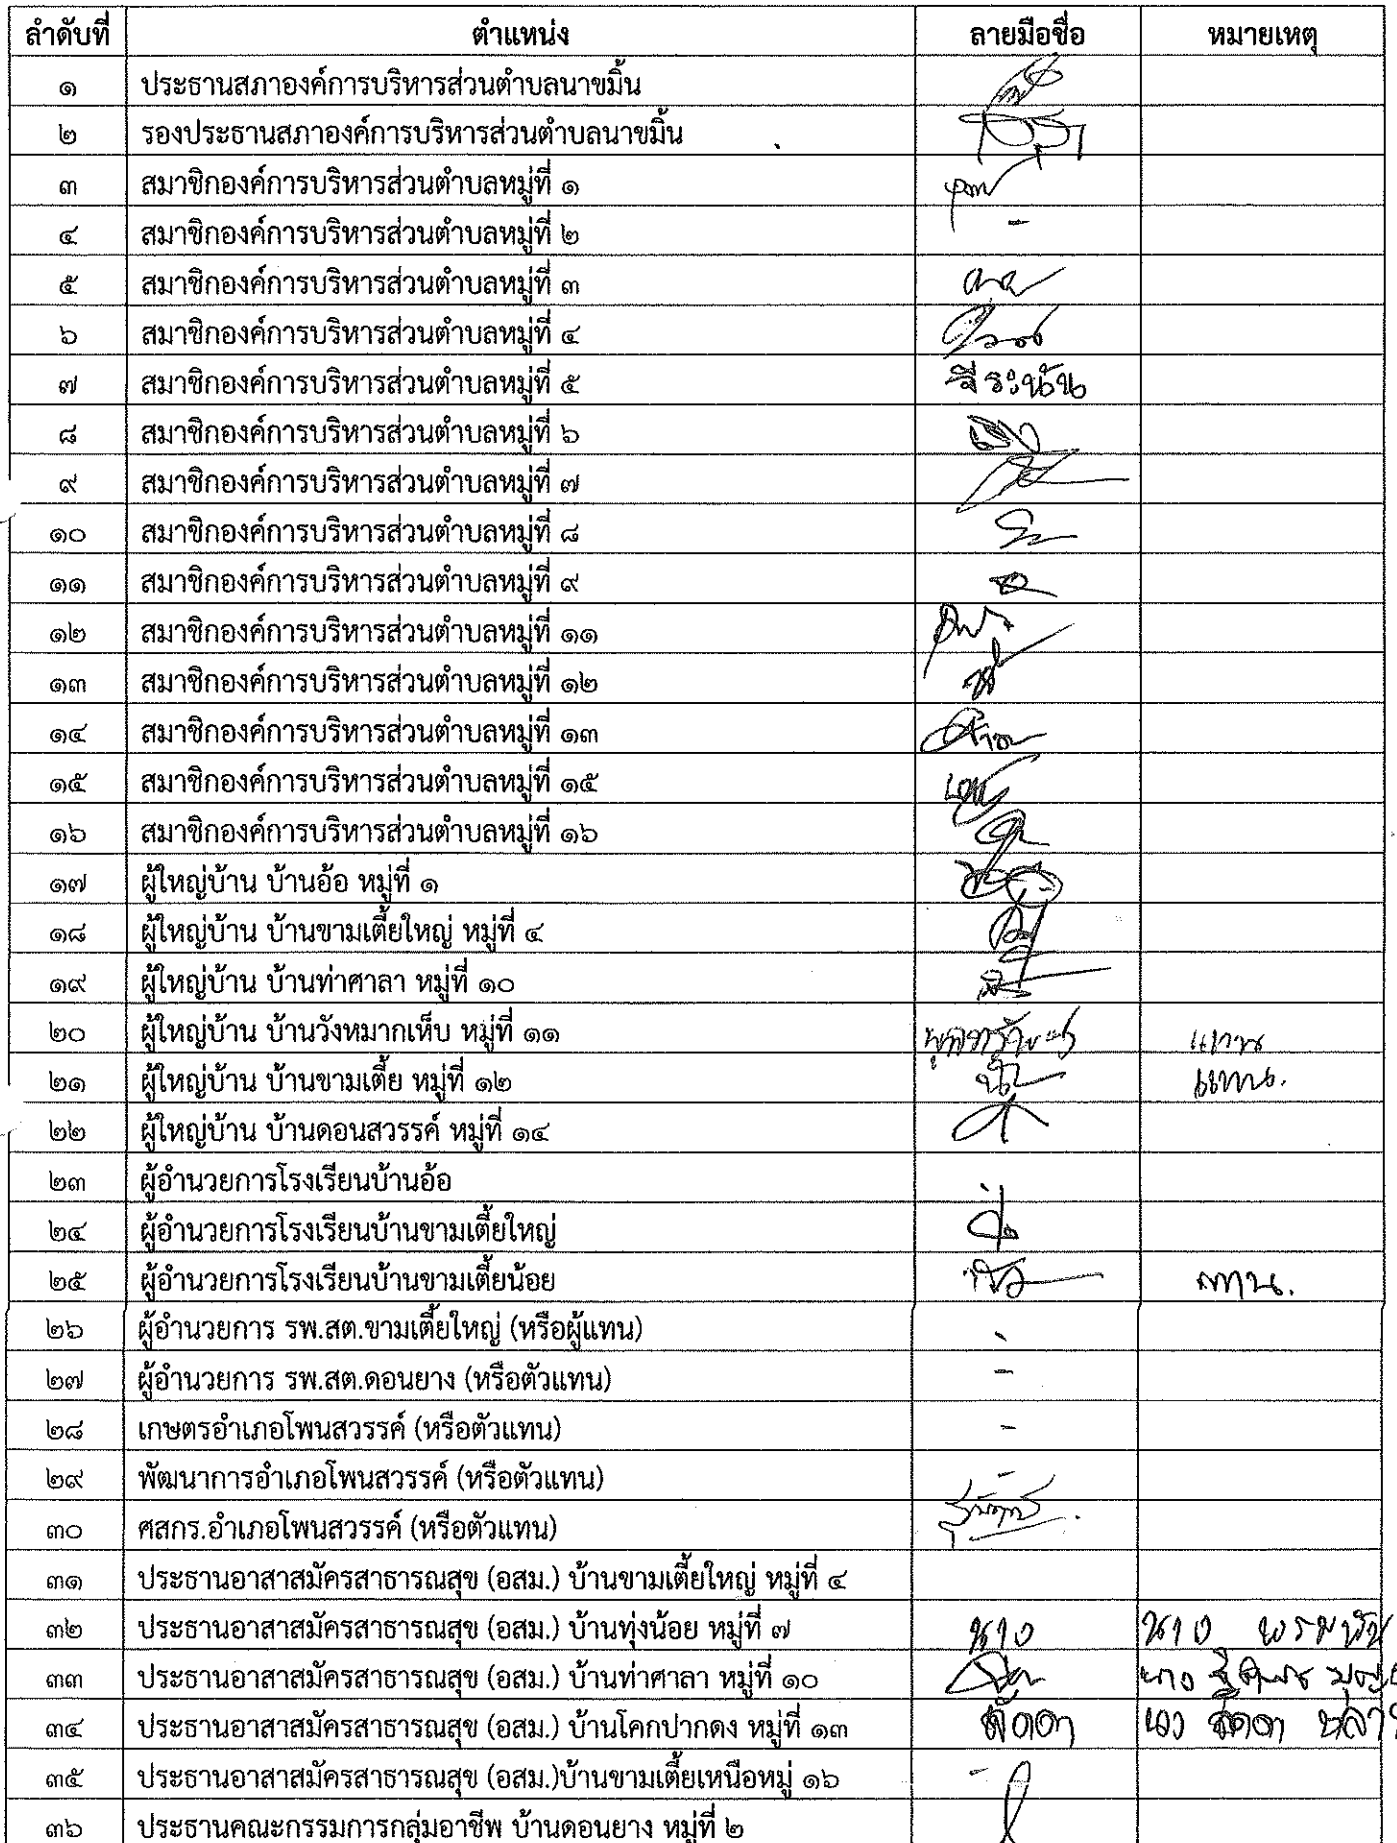 ลำดับที่ ตำแหน่ง ลายมือชื่อ หมายเหตุ
๑ ประธานสภาองค์การบริหารส่วนตำบลนาขมิ้น
๒ รองประธานสภาองค์การบริหารส่วนตำบลนาขมิ้น
๓ สมาชิกองค์การบริหารส่วนตำบลหมู่ที่ ๑
๔ สมาชิกองค์การบริหารส่วนตำบลหมู่ที่ ๒ -
๕ สมาชิกองค์การบริหารส่วนตำบลหมู่ที่ ๓
๖ สมาชิกองค์การบริหารส่วนตำบลหมู่ที่ ๔
๗ สมาชิกองค์การบริหารส่วนตำบลหมู่ที่ ๕
๘ สมาชิกองค์การบริหารส่วนตำบลหมู่ที่ ๖
๙ สมาชิกองค์การบริหารส่วนตำบลหมู่ที่ ๗
๑๐ สมาชิกองค์การบริหารส่วนตำบลหมู่ที่ ๘
๑๑ สมาชิกองค์การบริหารส่วนตำบลหมู่ที่ ๙
๑๒ สมาชิกองค์การบริหารส่วนตำบลหมู่ที่ ๑๑
๑๓ สมาชิกองค์การบริหารส่วนตำบลหมู่ที่ ๑๒
๑๔ สมาชิกองค์การบริหารส่วนตำบลหมู่ที่ ๑๓
๑๕ สมาชิกองค์การบริหารส่วนตำบลหมู่ที่ ๑๕
๑๖ สมาชิกองค์การบริหารส่วนตำบลหมู่ที่ ๑๖
๑๗ ผู้ใหญ่บ้าน บ้านอ้อ หมู่ที่ ๑
๑๘ ผู้ใหญ่บ้าน บ้านขามเตี้ยใหญ่ หมู่ที่ ๔
๑๙ ผู้ใหญ่บ้าน บ้านท่าศาลา หมู่ที่ ๑๐
๒๐ ผู้ใหญ่บ้าน บ้านวังหมากเห็บ หมู่ที่ ๑๑ แทน
๒๑ ผู้ใหญ่บ้าน บ้านขามเตี้ย หมู่ที่ ๑๒ แทน.
๒๒ ผู้ใหญ่บ้าน บ้านดอนสวรรค์ หมู่ที่ ๑๔
๒๓ ผู้อำนวยการโรงเรียนบ้านอ้อ
๒๔ ผู้อำนวยการโรงเรียนบ้านขามเตี้ยใหญ่
๒๕ ผู้อำนวยการโรงเรียนบ้านขามเตี้ยน้อย แทน.
๒๖ ผู้อำนวยการ รพ.สต.ขามเตี้ยใหญ่ (หรือผู้แทน) -
๒๗ ผู้อำนวยการ รพ.สต.ดอนยาง (หรือตัวแทน) -
๒๘ เกษตรอำเภอโพนสวรรค์ (หรือตัวแทน) -
๒๙ พัฒนาการอำเภอโพนสวรรค์ (หรือตัวแทน) -
๓๐ ศสกร.อำเภอโพนสวรรค์ (หรือตัวแทน)
๓๑ ประธานอาสาสมัครสาธารณสุข (อสม.) บ้านขามเตี้ยใหญ่ หมู่ที่ ๔
๓๒ ประธานอาสาสมัครสาธารณสุข (อสม.) บ้านทุ่งน้อย หมู่ที่ ๗ นาง นาง
๓๓ ประธานอาสาสมัครสาธารณสุข (อสม.) บ้านท่าศาลา หมู่ที่ ๑๐ นาง
๓๔ ประธานอาสาสมัครสาธารณสุข (อสม.) บ้านโคกปากดง หมู่ที่ ๑๓
๓๕ ประธานอาสาสมัครสาธารณสุข (อสม.)บ้านขามเตี้ยเหนือหมู่ ๑๖ -
๓๖ ประธานคณะกรรมการกลุ่มอาชีพ บ้านดอนยาง หมู่ที่ ๒